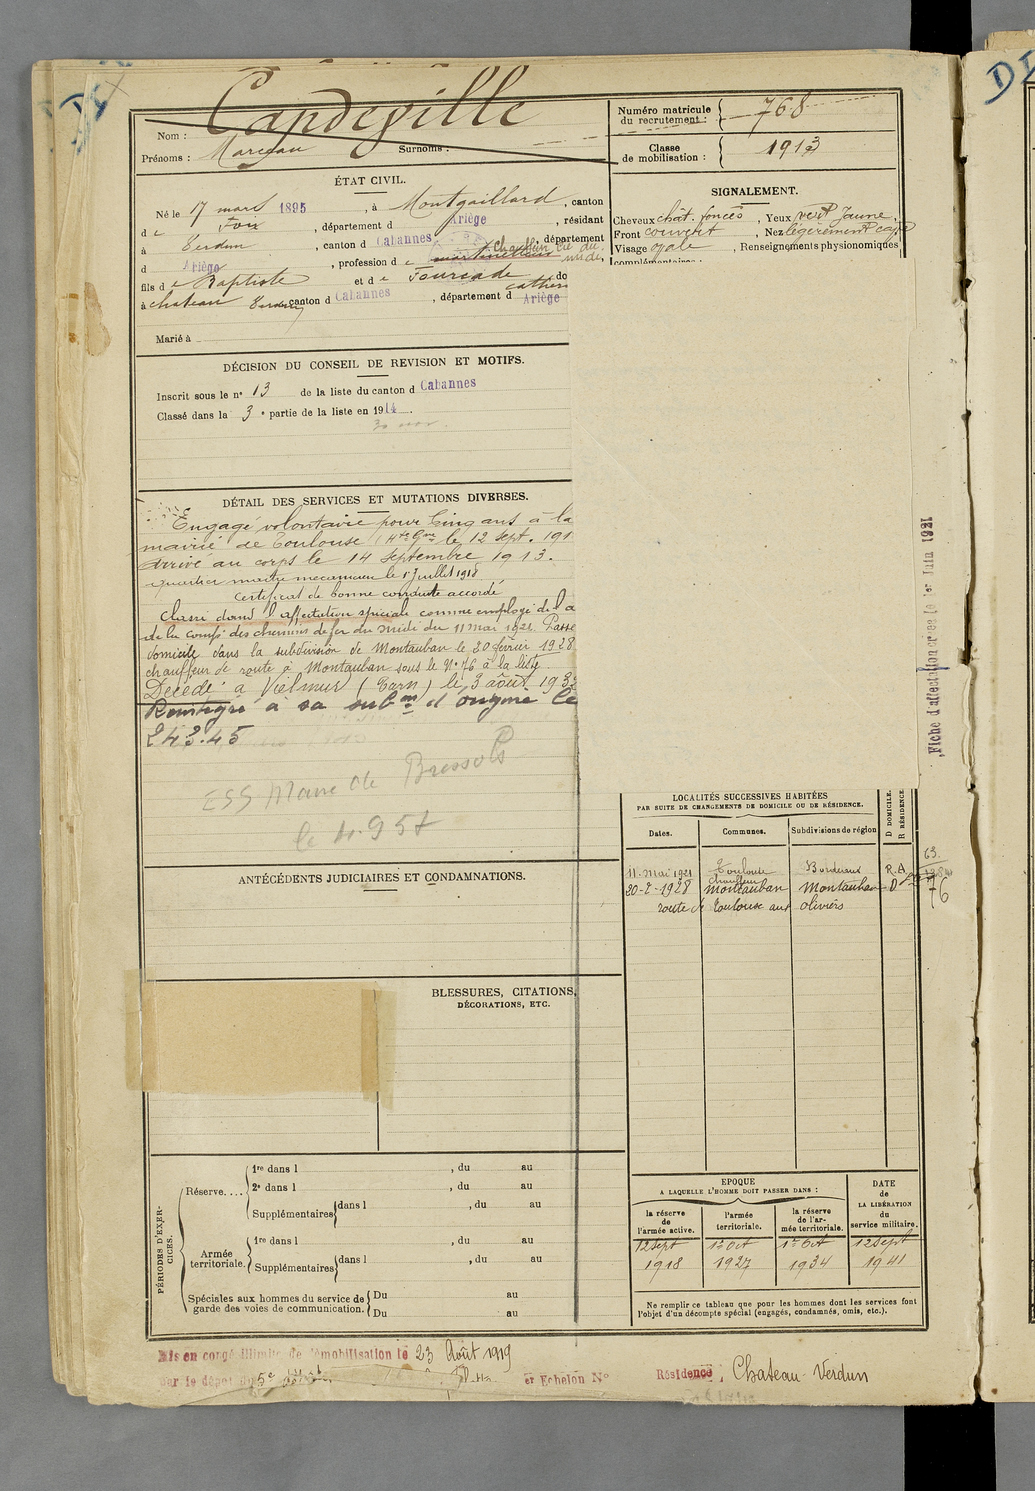 Capdeville
Nom :
Prénoms : Marceau Surnoms :
Numéro matricule du recrutement : 768
Classe de mobilisation : 1913
ÉTAT CIVIL.
Né le 17 mars 1895, à Montgaillard, canton
d e Foix, département d Ariège, résidant
à Verdun, canton d Cabannes, département
d Ariège, profession d e chauffeur Cie du midi,
fils d e Baptiste et d e Fourcade Cathe
à chateau Verdun canton d Cabannes, département d Ariège
Marié à
SIGNALEMENT.
Cheveux chât. foncés, Yeux vert Jaune.
Front couvert, Nez légèrement
Visage ovale, Renseignements physionomiques
complémentaires :
DÉCISION DU CONSEIL DE REVISION ET MOTIFS.
Inscrit sous le n° 13 de la liste du canton d Cabannes
Classé dans la 3e partie de la liste en 1914.
DÉTAIL DES SERVICES ET MUTATIONS DIVERSES.
Engagé volontaire pour Cinq ans à la
mairie de Toulouse (Hte Gne) le 12 Sept. 191
arrivé au corps le 14 Septembre 1913.
quartier maitre mecanicien le 1er Juillet 1918
Certificat de bonne conduite accordé
Classé dans l'affectation spéciale comme employé de la
de la Compie des chemins de fer du midi du 11 mai 1921. Passe
domicile dans la subdivision de Montauban le 20 février 1928
chauffeur de route à Montauban sous le N° 76 à la liste.
Décédé à Vielmur (Tarn) le 3 août 193
Réintégré à sa subon d'origine le
24 3.45
ESS Maire de Bressols
le
ANTÉCÉDENTS JUDICIAIRES ET CONDAMNATIONS.
BLESSURES, CITATIONS,
DÉCORATIONS, ETC.
LOCALITÉS SUCCESSIVES HABITÉES
PAR SUITE DE CHANGEMENTS DE DOMICILE OU DE RÉSIDENCE.
Dates. Communes. Subdivisions de région D DOMICILE. R RÉSIDENCE.
11 mai 1921 Toulouse Bordeaux R.A. 63
chauffeur
20-2-1928 Montauban Montauban D 76
route de Toulouse aux oliviers
Fiche d'affectation créée le 1er Juin 1921
PÉRIODES D'EXERCICES.
Réserve.... 1re dans l , du au
2e dans l , du au
Supplémentaires dans l , du au
Armée territoriale. 1re dans l , du au
Supplémentaires dans l , du au
Spéciales aux hommes du service de garde des voies de communication. Du au
Du au
EPOQUE
A LAQUELLE L'HOMME DOIT PASSER DANS :
DATE de LA LIBÉRATION du service militaire.
la réserve de l'armée active. l'armée territoriale. la réserve de l'armée territoriale.
12 Sept 1er Oct 1er Oct 12 Sept
1918 1927 1934 1941
Ne remplir ce tableau que pour les hommes dont les services font
l'objet d'un décompte spécial (engagés, condamnés, omis, etc.).
Mis en congé illimité de démobilisation le 23 Août 1919
par le dépôt du 5e er Echelon N° Résidence : Chateau-Verdun